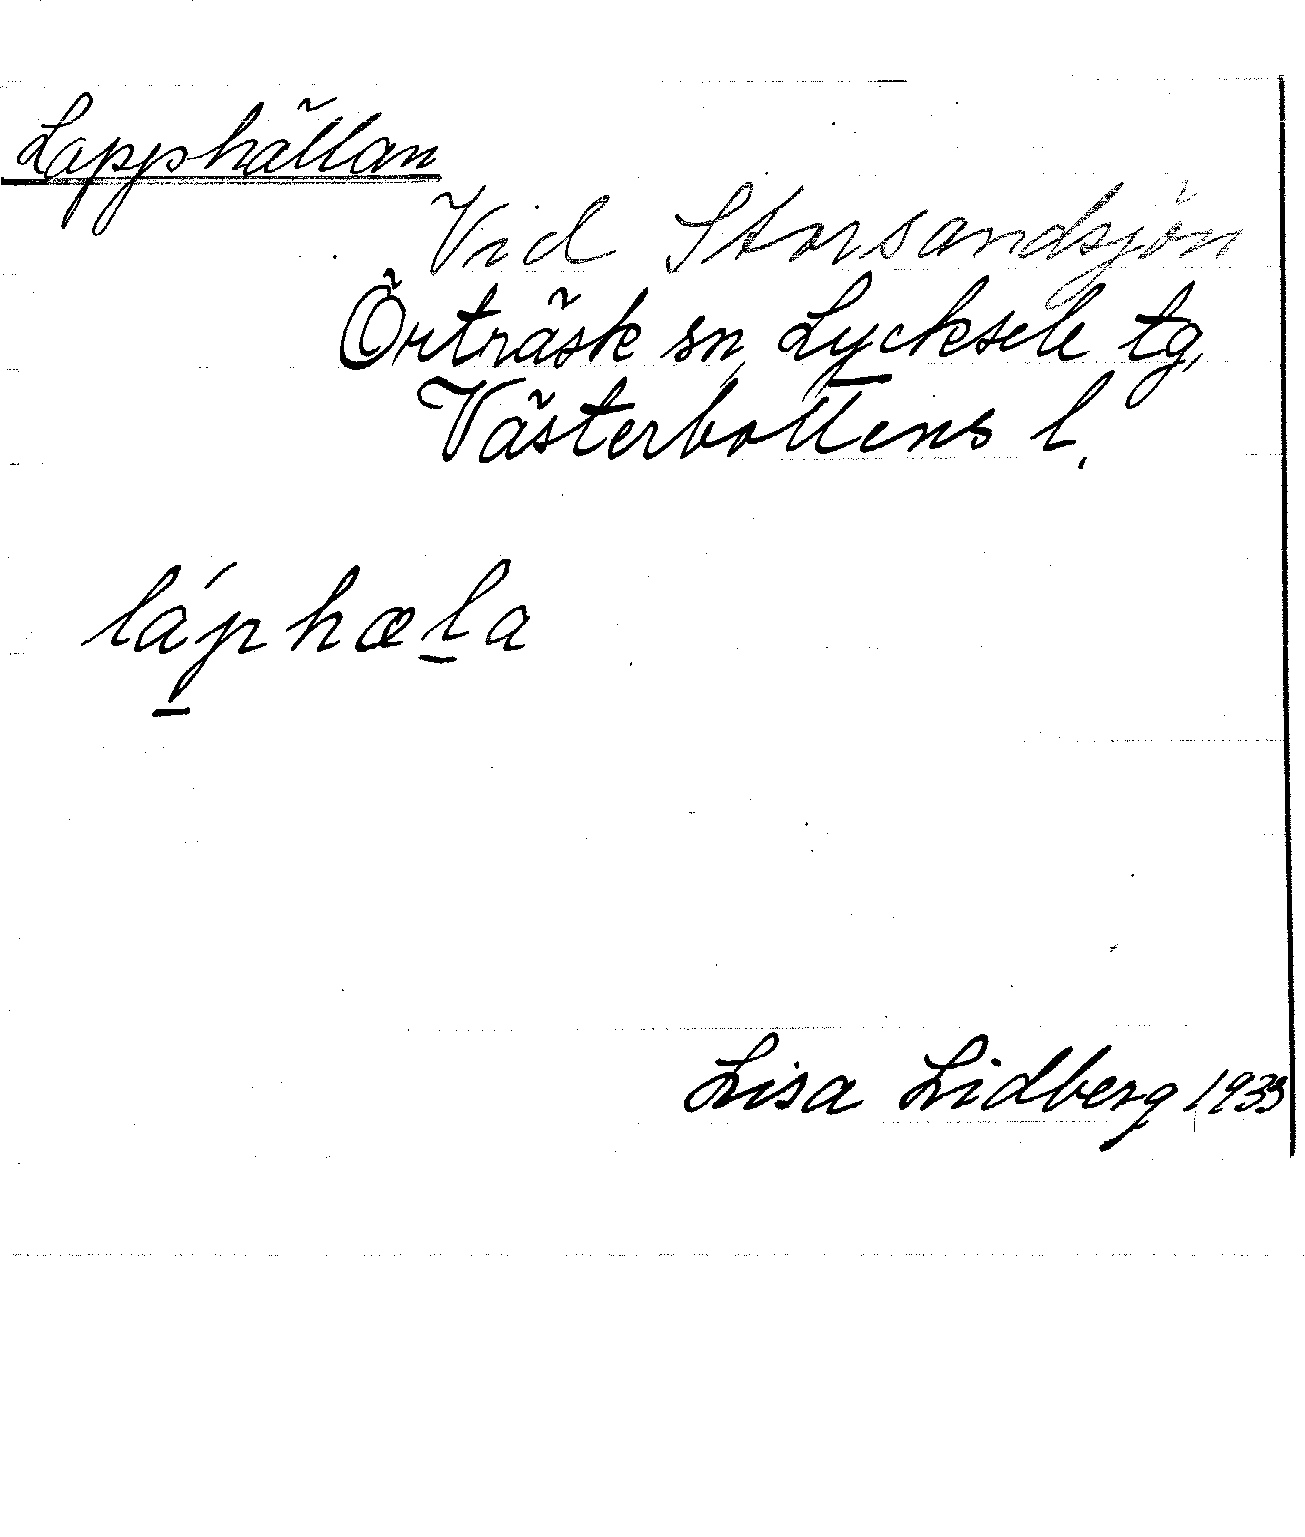 Lapphällan
Vid Storsandsjön
Örträsk sn, Lycksele tg,
Västerbottens l.
láp̱hæḻa
Lisa Lidberg 1933